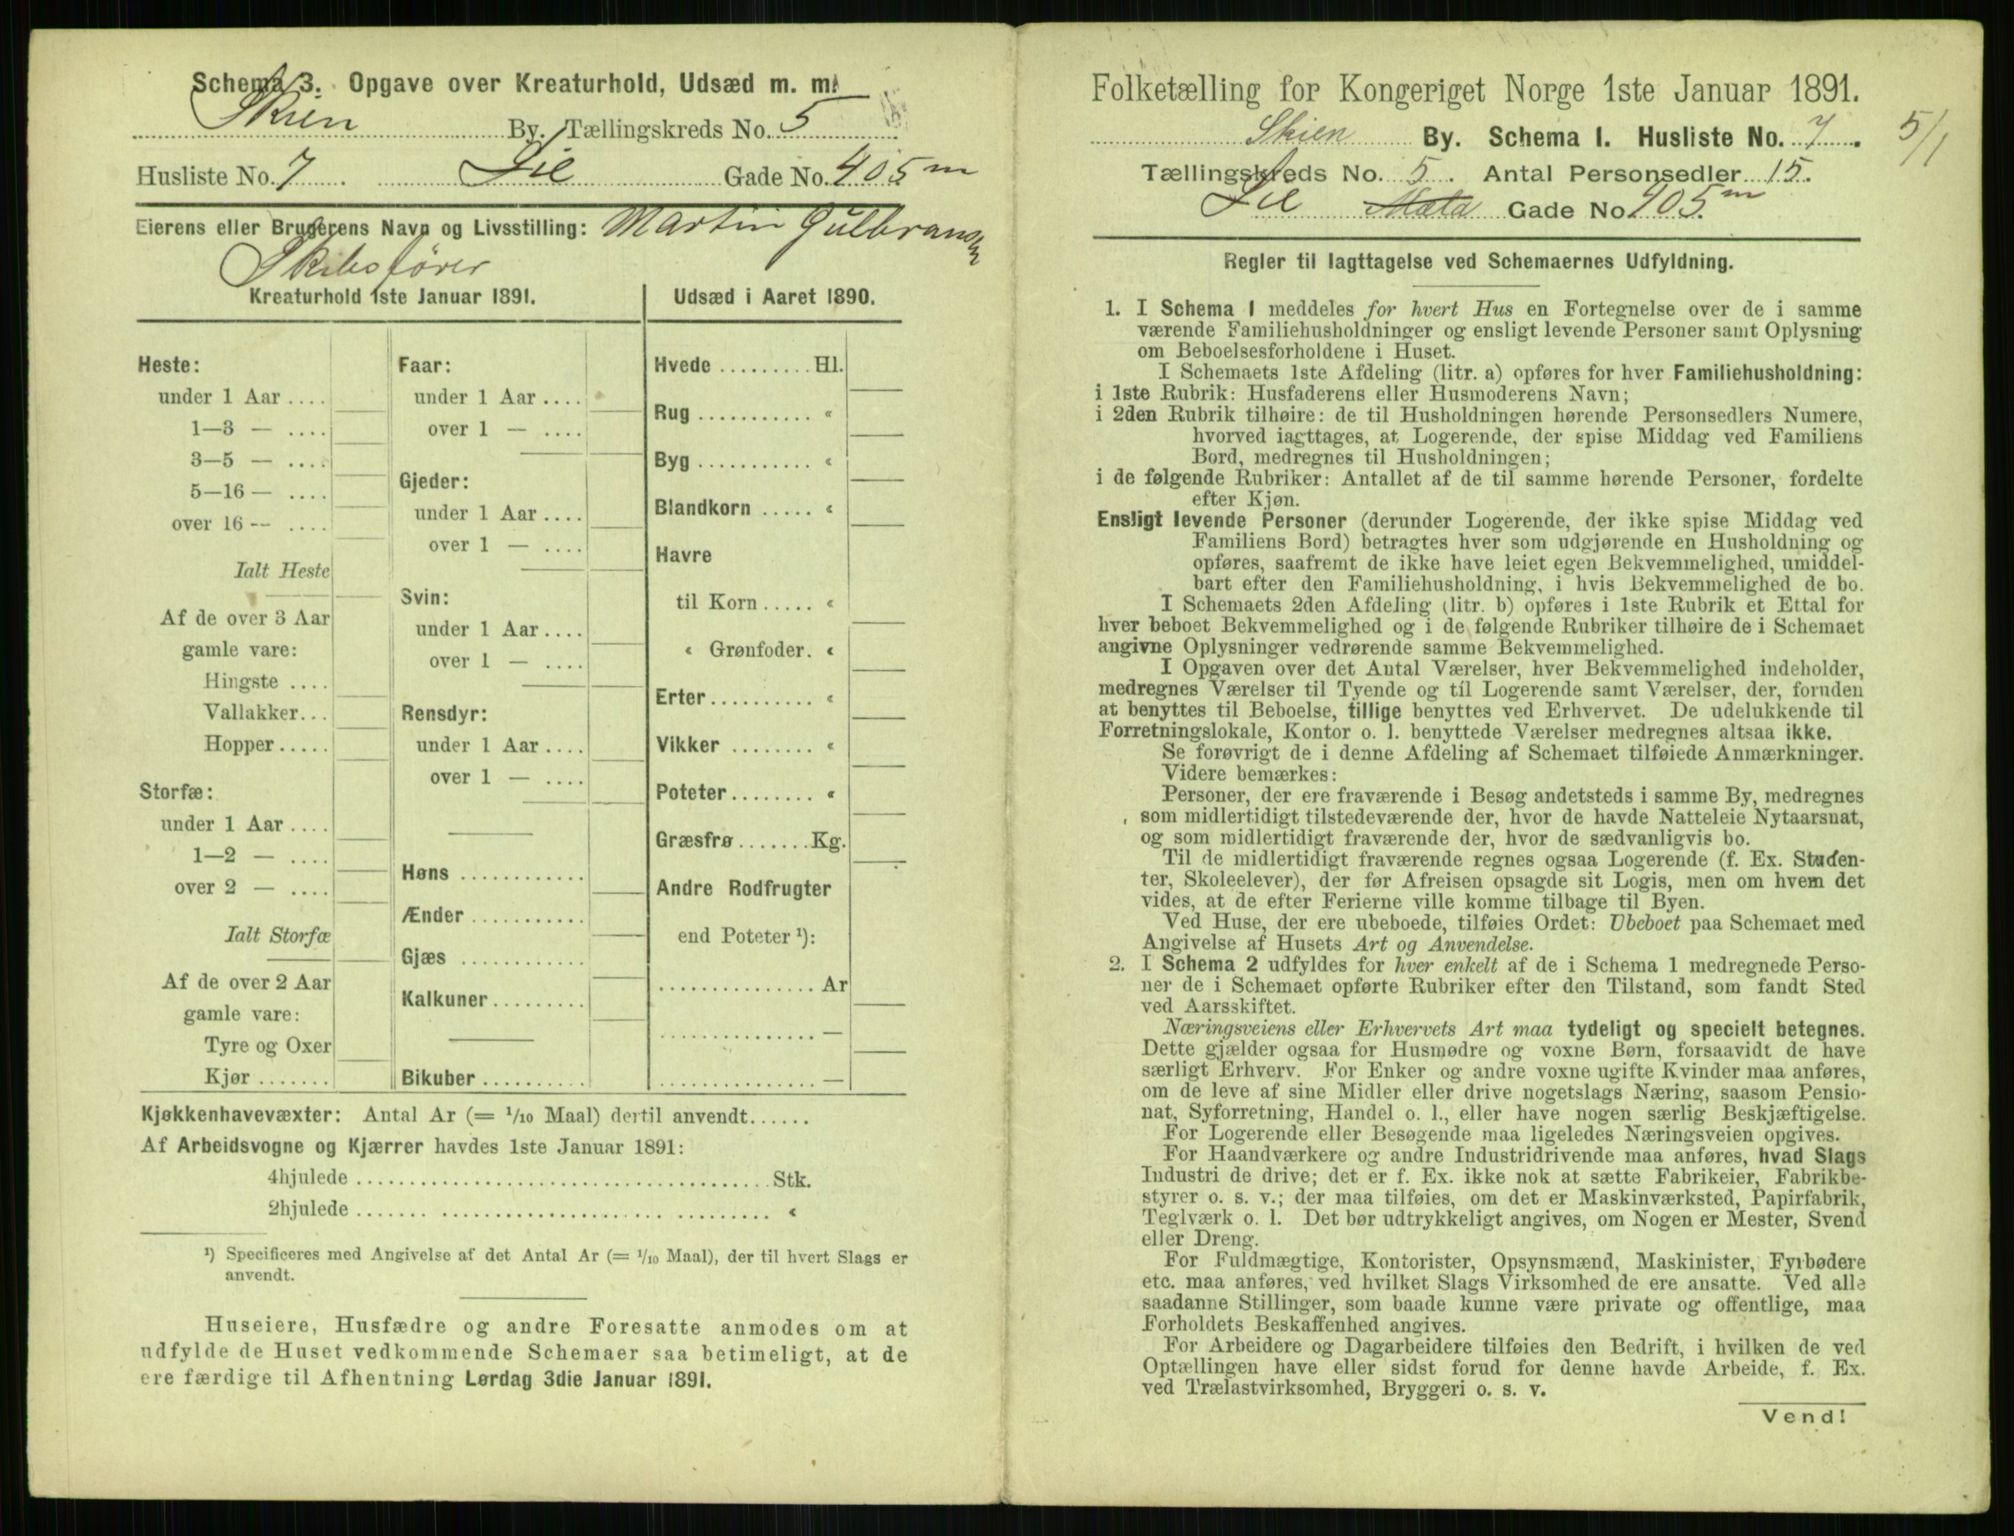 Schema 3. Opgave over Kreaturhold, Udsæd m. m.
Skien By. Tællingskreds No. 5
Husliste No. 7 Lie Gade No. 405 m
Eierens eller Brugerens Navn og Livsstilling: Martin Gulbransen
Skibsfører
Kreaturhold 1ste Januar 1891.
Heste:
under 1 Aar ....
1—3 — ....
3—5 — ....
5—16 — ....
over 16 -- ....
Ialt Heste
Af de over 3 Aar
gamle vare:
Hingste ....
Vallakker...
Hopper.....
Storfæ:
under 1 Aar ....
1—2 — ....
over 2 — ....
Ialt Storfæ
Af de over 2 Aar
gamle vare:
Tyre og Oxer
Kjør.......
Faar:
under 1 Aar ....
over 1 — ....
Gjeder:
under 1 Aar ....
over 1 — ....
Svin:
under 1 Aar ....
over 1 — ....
Rensdyr:
under 1 Aar ....
over 1 — ....
Høns ............
Ænder ...........
Gjæs ............
Kalkuner.........
Bikuber..........
Udsæd i Aaret 1890.
Hvede ......... Hl.
Rug ........... «
Byg ........... «
Blandkorn ..... «
Havre
til Korn ..... «
« Grønfoder. «
Erter.......... «
Vikker ........ «
Poteter........ «
Græsfrø.......Kg.
Andre Rodfrugter
end Poteter ¹):
............... Ar
............... —
............... —
Kjøkkenhavevæxter: Antal Ar (= 1/10 Maal) dertil anvendt......
Af Arbeidsvogne og Kjærrer havdes 1ste Januar 1891:
4hjulede .................................... Stk.
2hjulede .................................... «
¹) Specificeres med Angivelse af det Antal Ar (= 1/10 Maal), der til hvert Slags er
anvendt.
Huseiere, Husfædre og andre Foresatte anmodes om at
udfylde de Huset vedkommende Schemaer saa betimeligt, at de
ere færdige til Afhentning Lørdag 3die Januar 1891.
Folketælling for Kongeriget Norge 1ste Januar 1891.
Skien By. Schema I. Husliste No. 7. 5/1
Tællingskreds No. 5. Antal Personsedler 15.
Lie Gade No. 405 m
Regler til Iagttagelse ved Schemaernes Udfyldning.
1. I Schema 1 meddeles for hvert Hus en Fortegnelse over de i samme
værende Familiehusholdninger og ensligt levende Personer samt Oplysning
om Beboelsesforholdene i Huset.
I Schemaets 1ste Afdeling (litr. a) opføres for hver Familiehusholdning:
i 1ste Rubrik: Husfaderens eller Husmoderens Navn;
i 2den Rubrik tilhøire: de til Husholdningen hørende Personsedlers Numere,
hvorved iagttages, at Logerende, der spise Middag ved Familiens
Bord, medregnes til Husholdningen;
i de følgende Rubriker: Antallet af de til samme hørende Personer, fordelte
efter Kjøn.
Ensligt levende Personer (derunder Logerende, der ikke spise Middag ved
Familiens Bord) betragtes hver som udgjørende en Husholdning og
opføres, saafremt de ikke have leiet egen Bekvemmelighed, umiddel-
bart efter den Familiehusholdning, i hvis Bekvemmelighed de bo.
I Schemaets 2den Afdeling (litr. b) opføres i 1ste Rubrik et Ettal for
hver beboet Bekvemmelighed og i de følgende Rubriker tilhøire de i Schemaet
angivne Oplysninger vedrørende samme Bekvemmelighed.
I Opgaven over det Antal Værelser, hver Bekvemmelighed indeholder,
medregnes Værelser til Tyende og til Logerende samt Værelser, der, foruden
at benyttes til Beboelse, tillige benyttes ved Erhvervet. De udelukkende til
Forretningslokale, Kontor o. l. benyttede Værelser medregnes altsaa ikke.
Se forøvrigt de i denne Afdeling af Schemaet tilføiede Anmærkninger.
Videre bemærkes:
Personer, der ere fraværende i Besøg andetsteds i samme By, medregnes
som midlertidigt tilstedeværende der, hvor de havde Natteleie Nytaarsnat,
og som midlertidigt fraværende der, hvor de sædvanligvis bo.
Til de midlertidigt fraværende regnes ogsaa Logerende (f. Ex. Studen-
ter, Skoleelever), der før Afreisen opsagde sit Logis, men om hvem det
vides, at de efter Ferierne ville komme tilbage til Byen.
Ved Huse, der ere ubeboede, tilføies Ordet: Ubeboet paa Schemaet med
Angivelse af Husets Art og Anvendelse.
2. I Schema 2 udfyldes for hver enkelt af de i Schema 1 medregnede Perso-
ner de i Schemaet opførte Rubriker efter den Tilstand, som fandt Sted
ved Aarsskiftet.
Næringsveiens eller Erhvervets Art maa tydeligt og specielt betegnes.
Dette gjælder ogsaa for Husmødre og voxne Børn, forsaavidt de have
særligt Erhverv. For Enker og andre voxne ugifte Kvinder maa anføres,
om de leve af sine Midler eller drive nogetslags Næring, saasom Pensio-
nat, Syforretning, Handel o. l., eller have nogen særlig Beskjæftigelse.
For Logerende eller Besøgende maa ligeledes Næringsveien opgives.
For Haandværkere og andre Industridrivende maa anføres, hvad Slags
Industri de drive; det er f. Ex. ikke nok at sætte Fabrikeier, Fabrikbe-
styrer o. s. v.; der maa tilføies, om det er Maskinværksted, Papirfabrik,
Teglværk o. l. Det bør udtrykkeligt angives, om Nogen er Mester, Svend
eller Dreng.
For Fuldmægtige, Kontorister, Opsynsmænd, Maskinister, Fyrbødere
etc. maa anføres, ved hvilket Slags Virksomhed de ere ansatte. Ved alle
saadanne Stillinger, som baade kunne være private og offentlige, maa
Forholdets Beskaffenhed angives.
For Arbeidere og Dagarbeidere tilføies den Bedrift, i hvilken de ved
Optællingen have eller sidst forud for denne havde Arbeide, f. Ex.
ved Trælastvirksomhed, Bryggeri o. s. v.
Vend!